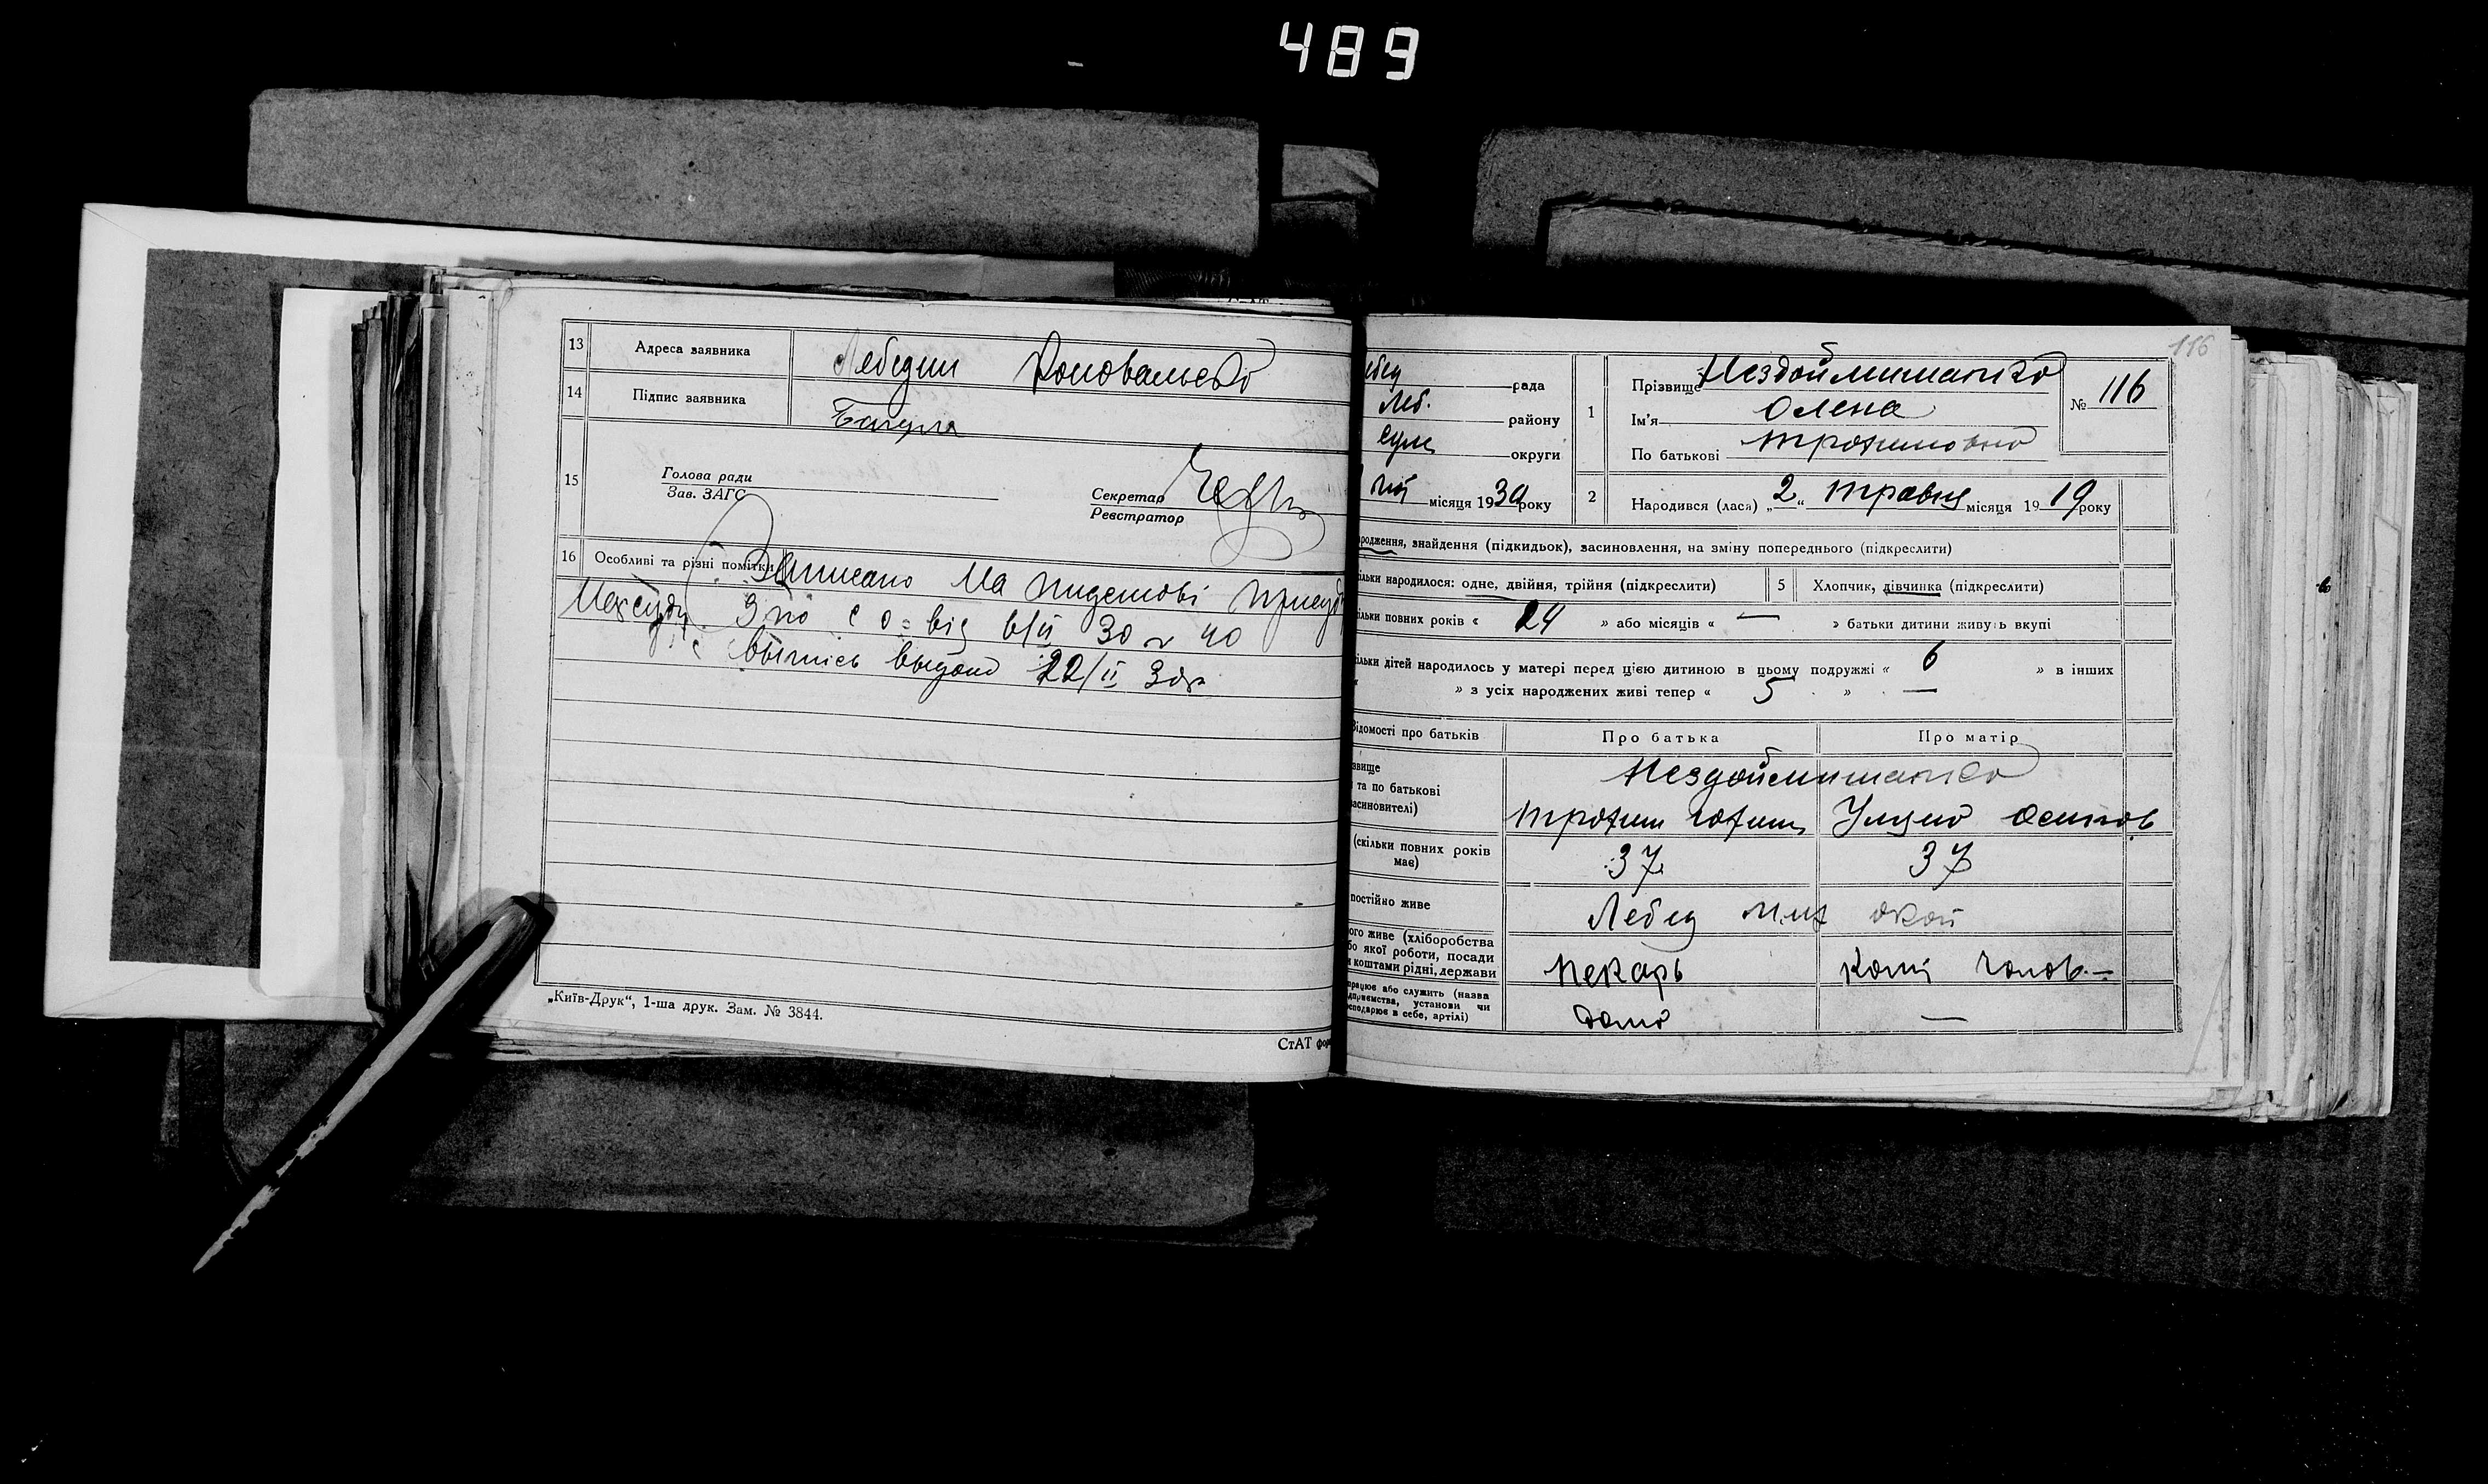 489
13 Адреса заявника Лебедин Коновальсько
14 Підпис заявника Багула
15 Голова ради
Зав. ЗАГС
Секретар
Реєстратор
16 Особливі та різні помітки Записано На підставі присуд
Нарсуду
від 6/II 30 р 40
выпись выдано 22/II 30р
„Київ-Друк“, 1-ша друк. Зам. № 3844.
СтАТ фор
116
рада
Леб. району
Сум округи
місяця 1930 року
1 Прізвище Нездойминанко
Ім'я Олена
По батькові Трохимовно
№ 116
2 Народився (лася) „2“ травня місяця 1919 року
родження, знайдення (підкидьок), засиновлення, на зміну попереднього (підкреслити)
ільки народилося: одне, двійня, трійня (підкреслити) 5 Хлопчик, дівчинка (підкреслити)
ільки повних років « 24 » або місяців « — » батьки дитини живуть вкупі
ільки дітей народилось у матері перед цією дитиною в цьому подружжі « 6 » в інших
« » з усіх народжених живі тепер « 5 » —
Відомості про батьків Про батька Про матір
звище
та по батькові
засиновителі)
Нездойминанко
Трохим Юхим Уляно Осипов
(скільки повних років
має) 37 37
постійно живе Лебед
ого живе (хліборобства
бо якої роботи, посади
и коштами рідні, держави
пекарь кошт чолов. —
працює або служить (назва
дприємства, установи чи
осподарює в себе, артілі)
дома —